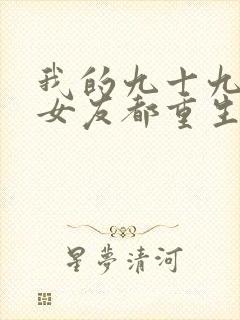 我的九十九
女友都重生
星夢清河